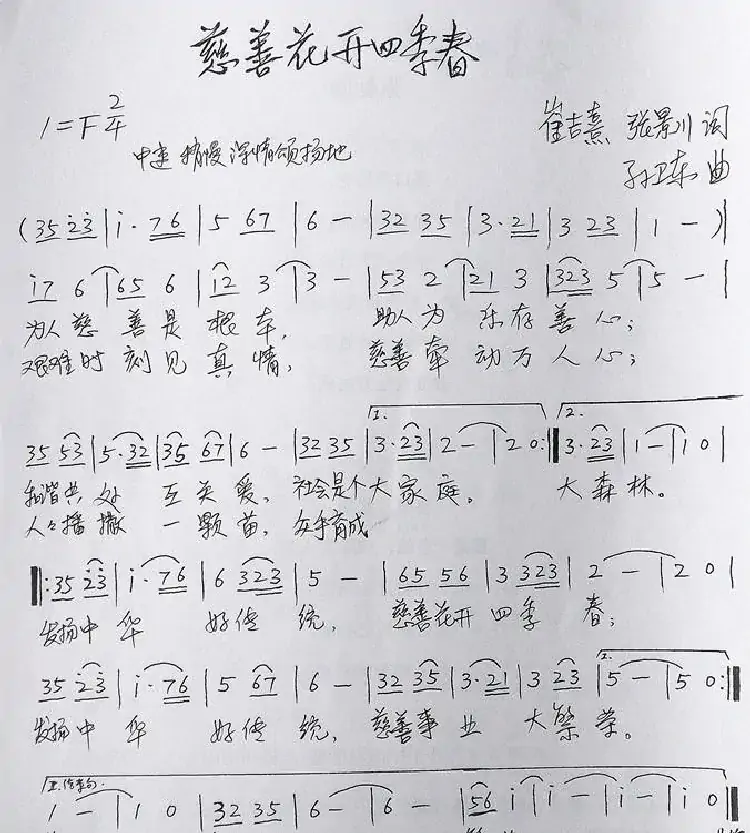 慈善花开四季春
1=F 2/4
中速 稍慢 深情颂扬地
崔吉熹 张景川 词
孙卫东 曲
(35 2̇3̇ | i· 76 | 5 67 | 6 – | 32 35 | 3·21 | 3 23 | 1 – )|
i7 6 | 65 6 | i2 3 | 3 – | 53 2 | 21 3 | 323 5 | 5 – |
为人慈 善是根本, 助人为 乐存善心;
艰难时 刻见真情, 慈善牵 动万人心;
1. 2.
35 53 | 5·32 | 35 67 | 6 – | 32 35 | 3·23 | 2 – | 2 0 :‖ 3·23 | 1 – | 1 0 |
和谐共处 互关爱, 社会是个大家庭, 大森林。
人人播撒 一颗苗, 众手育成
‖: 35 2̇3̇ | i· 76 | 6 323 | 5 – | 65 56 | 3 323 | 2 – | 2 0 |
发扬中华 好传统, 慈善花开四季春;
1.
35 2̇3̇ | i· 76 | 5 67 | 6 – | 32 35 | 3·21 | 3 23 | 5 – | 5 0 :‖
发扬中华 好传统, 慈善事业大繁荣。
1 – | 1 0 | 32 35 | 6 – | 6 – | 56 i | i – | i – | i 0 ‖